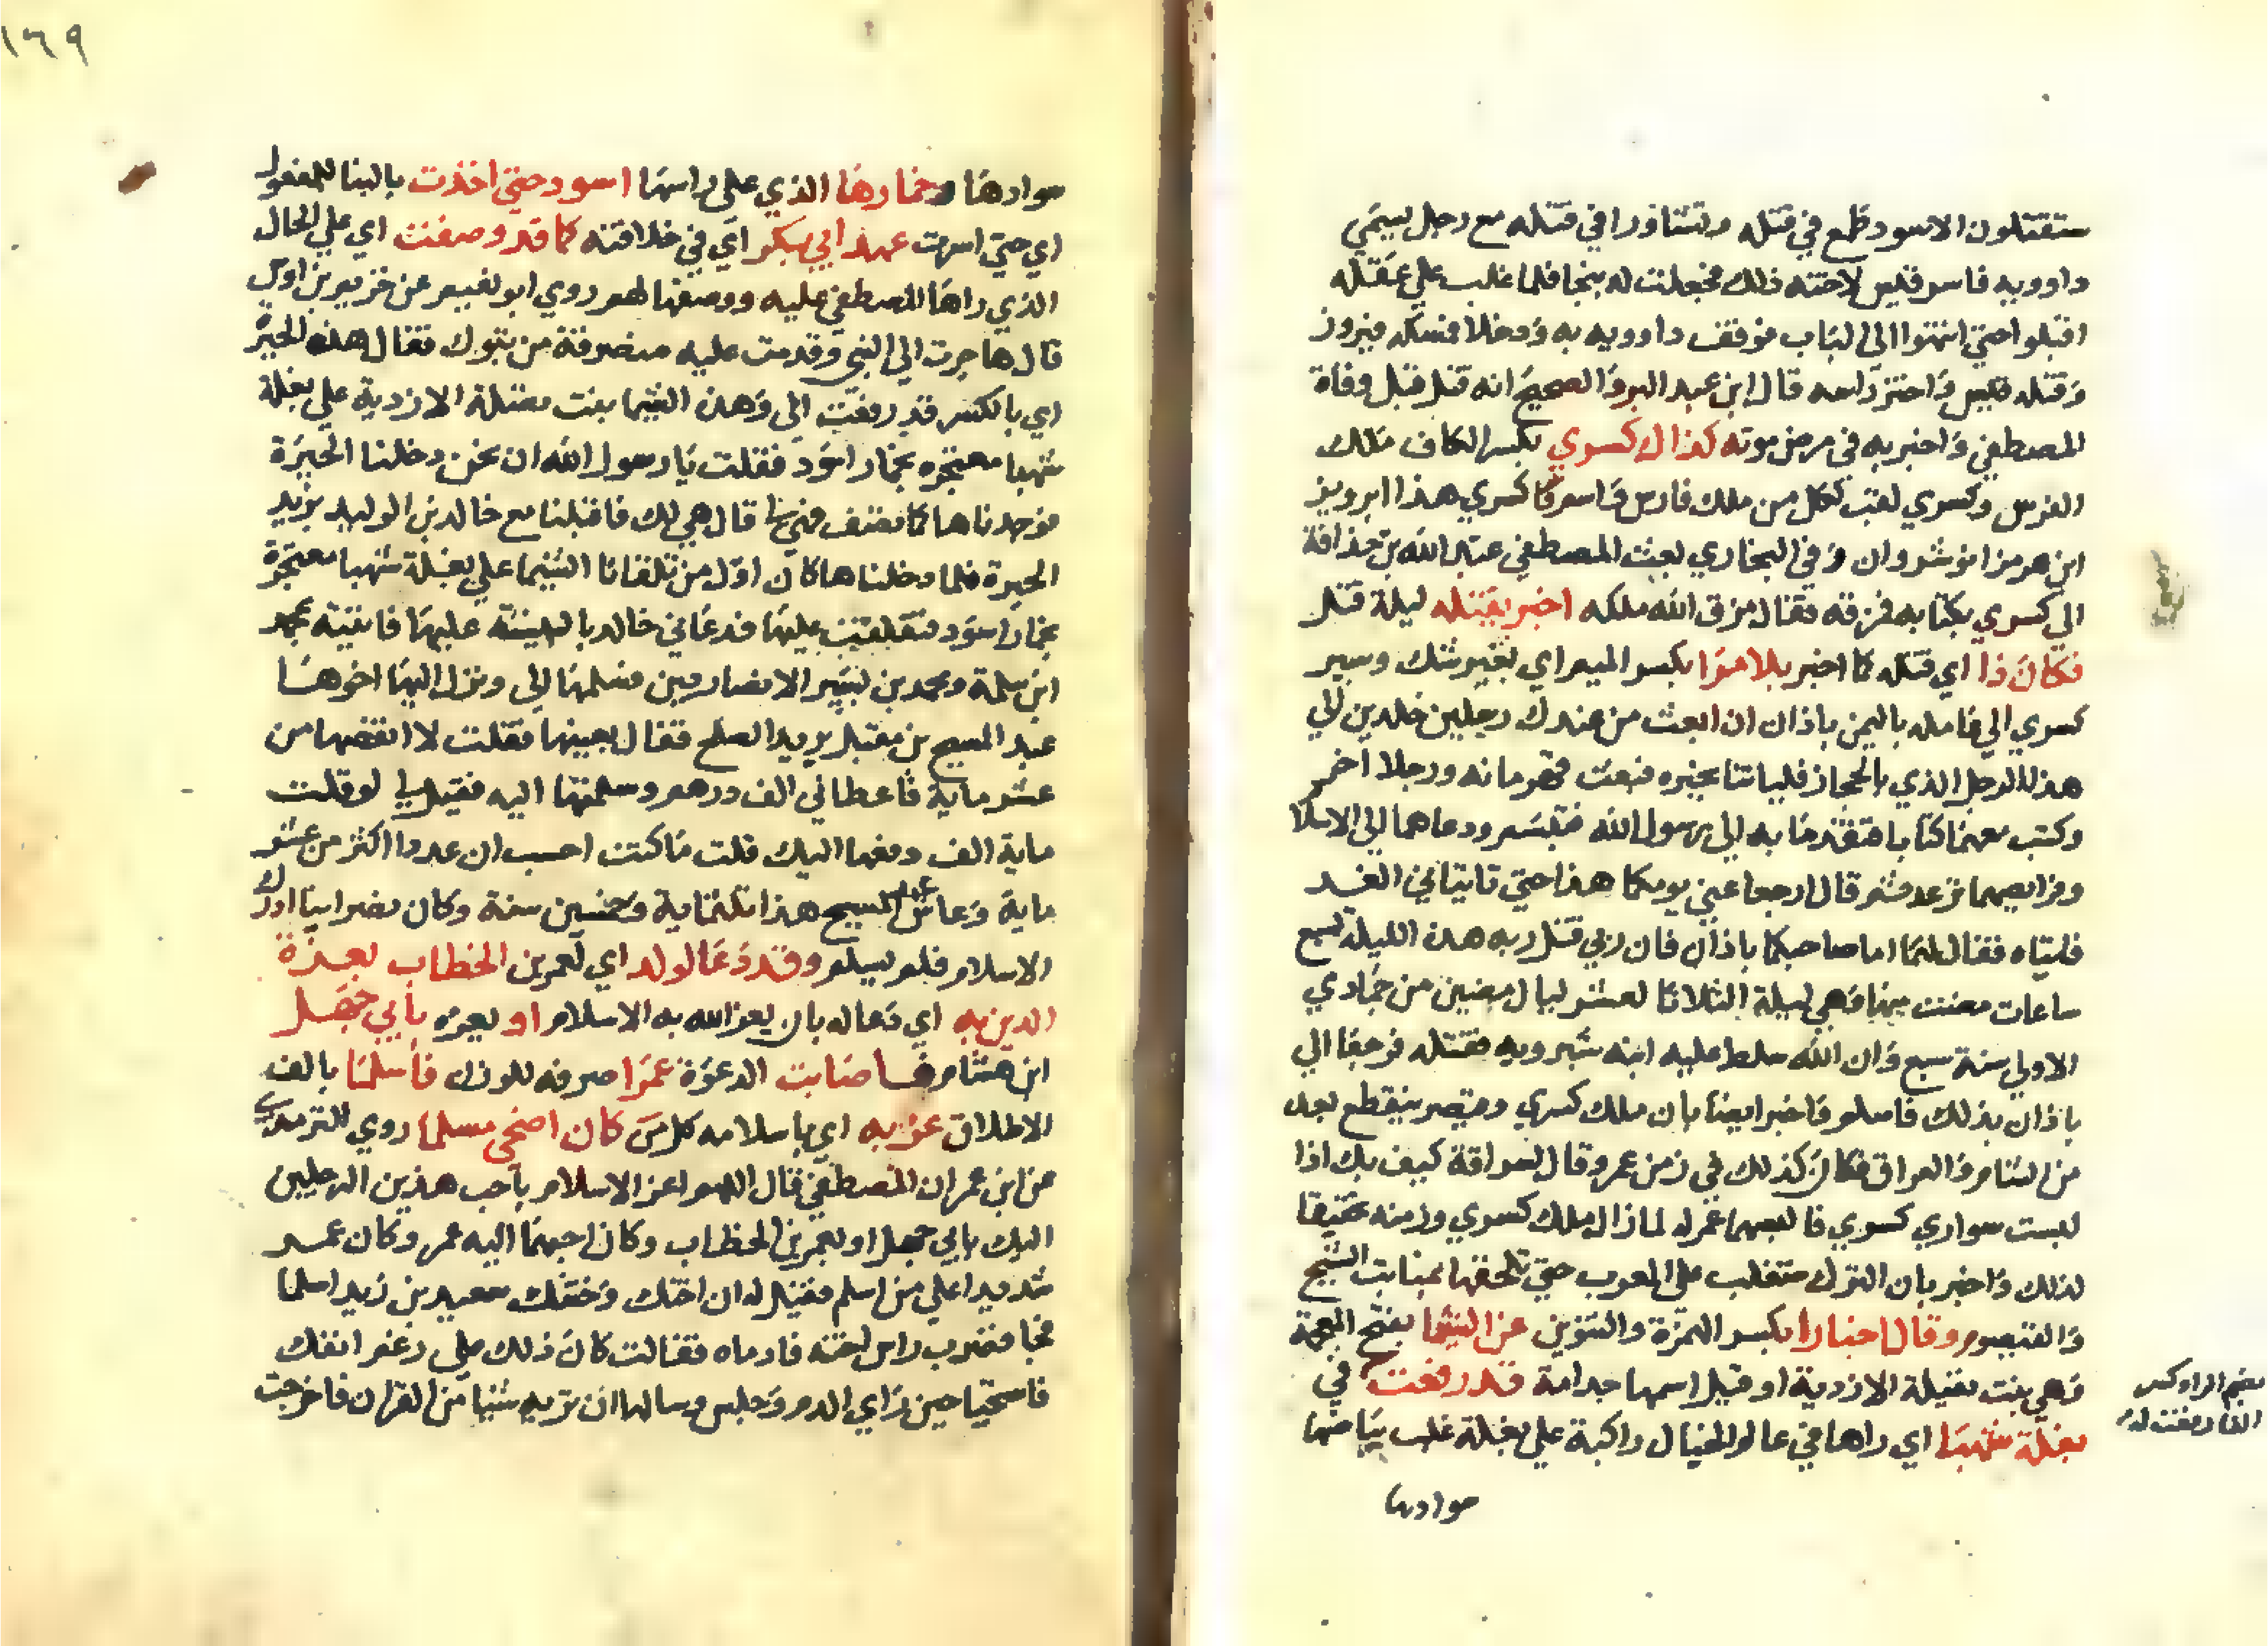 ستقتلون الاسود طمع في قتله وتشاورا في قتله مع رجل يسمي
داوويه فاسر قليس لاخته ذلك فجعلت له بنجا فلما غلب علي عقله
اقبلوا حتي انتهوا الي الباب فوقف داوويه به ودخلا فمسكه فيروز
وقتله قليس واحتز راسه قال ابن عبد البر والصحيح انه قتل قبل وفاة
المصطفي واخبر به في مرض موته كذاك كسري بكسر الكاف ملك
الفرس وكسري لقب لكل من ملك فارس واسم كسري هذا ابرويز
ابن هرمز انوشروان وفي البخاري بعث المصطفي عبد الله بن حذافة
الي كسري بكتابه فمزقه فقال مزق الله ملكه اخبر بقتله ليلة قتل
فكان ذا اي قتله كما اخبر بلا مرا بكسر الميم اي بغير شك وسير
كسري الي عامله باليمن باذان ان ابعث من عندك رجلين جلدين الي
هذا الرجل الذي بالحجاز فلياتنا بخبره فبعث قهرمانه ورجلا اخر
وكتب معهما كتابا فقدما به الي رسول الله فتبسم ودعاهما الي الاسلام
وفرايصهما ترعد ثم قال ارجعا عني يومكما هذا حتي تاتياني الغد
فاتياه فقال لهما اما صاحبكما باذان فان ربي قتل ربه هذه الليلة لسبع
ساعات مضت منها وهي ليلة الثلاثا لعشر ليال مضين من جمادي
الاولي سنة سبع وان الله سلط عليه ابنه شيرويه فقتله فرجعا الي
باذان بذلك فاسلم واخبر ايضا بان ملك كسري وقيصر ينقطع بعد
من الشام والعراق فكان كذلك في زمن عمر وقال لسراقة كيف بك اذا
لبست سواري كسري فالبسهما عمر له لما زال ملك كسري وزمنه تحقيقا
لذلك واخبر بان الترك ستغلب علي العرب حتي تلحقها بمنابت الشيح
والقيصوم وقال اخبارا بكسر الهمزة والتنوين عن الشيما بفتح المعجمة
وهي بنت بقيلة الازدية او قيل اسمها جدامة قد رفعت في
بضم الرا وكسر
الفا رفعت له
بغلة شهبا اي راها في عالم الخيال راكبة علي بغلة غلب بياضها
سوادها
١٦٩
سوادها وخمارها الذي علي راسها اسود حتي اخذت بالبنا للمفعول
اي حتي اسرت عهد ابي بكر اي في خلافته كما قد وصفت اي علي الحال
الذي راها المصطفي عليه ووصفها لهم روي ابو نعيم عن خزيم بن اوس
قال هاجرت الي النبي وقدمت عليه منصرفه من تبوك فقال هذه الحيرة
اي بالكسر قد رفعت الي وهذه الشيما بنت بقيلة الازدية علي بغلة
شهبا معتجره بخمار اسود فقلت يا رسول الله ان نحن دخلنا الحيرة
فوجدناها كما تصف فهي لي قال هي لك فاقبلنا مع خالد بن الوليد نريد
الحيرة فلما دخلناها كان اول من تلقانا الشيما علي بغلة شهبا معتجرة
بخمار اسود فتعلقت عليها فدعاني خالد بالبينة عليها فاتيته بمحمد
ابن سلمة ومحمد بن بشير الانصاريين فسلمها الي ونزل الينا اخوها
عبد المسيح بن بقيلة يريد الصلح فقال بعنيها فقلت لا انقصها من
عشر ماية فاعطاني الف درهم وسلمتها اليه فقيل لي لو قلت
ماية الف دفعها اليك قلت ما كنت احسب ان عددا اكثر من عشر
ماية وعاش عبد المسيح هذا ثلثماية وخمسين سنة وكان نصرانيا ادرك
الاسلام فلم يسلم وقد دعا لولد اي لعمر بن الخطاب بعزة
الدين به اي دعا له بان يعز الله به الاسلام او يعزه بابي جهل
ابن هشام فاصابت الدعوة عمرا صرفه للوزن فاسلما بالف
الاطلاق عز به اي باسلامه كل من كان اضحي مسلما روي الترمذي
عن ابن عمر ان المصطفي قال اللهم اعز الاسلام باحب هذين الرجلين
اليك بابي جهل او بعمر بن الخطاب وكان احبهما اليه عمر وكان عمر
شديدا علي من اسلم فقيل له ان اختك وختنك سعيد بن زيد اسلما
فجا فضرب راس اخته فادماه فقالت كان ذلك علي رغم انفك
فاستحيا حين راي الدم وجلس وسالها ان تريه شيا من القران فاخرجت